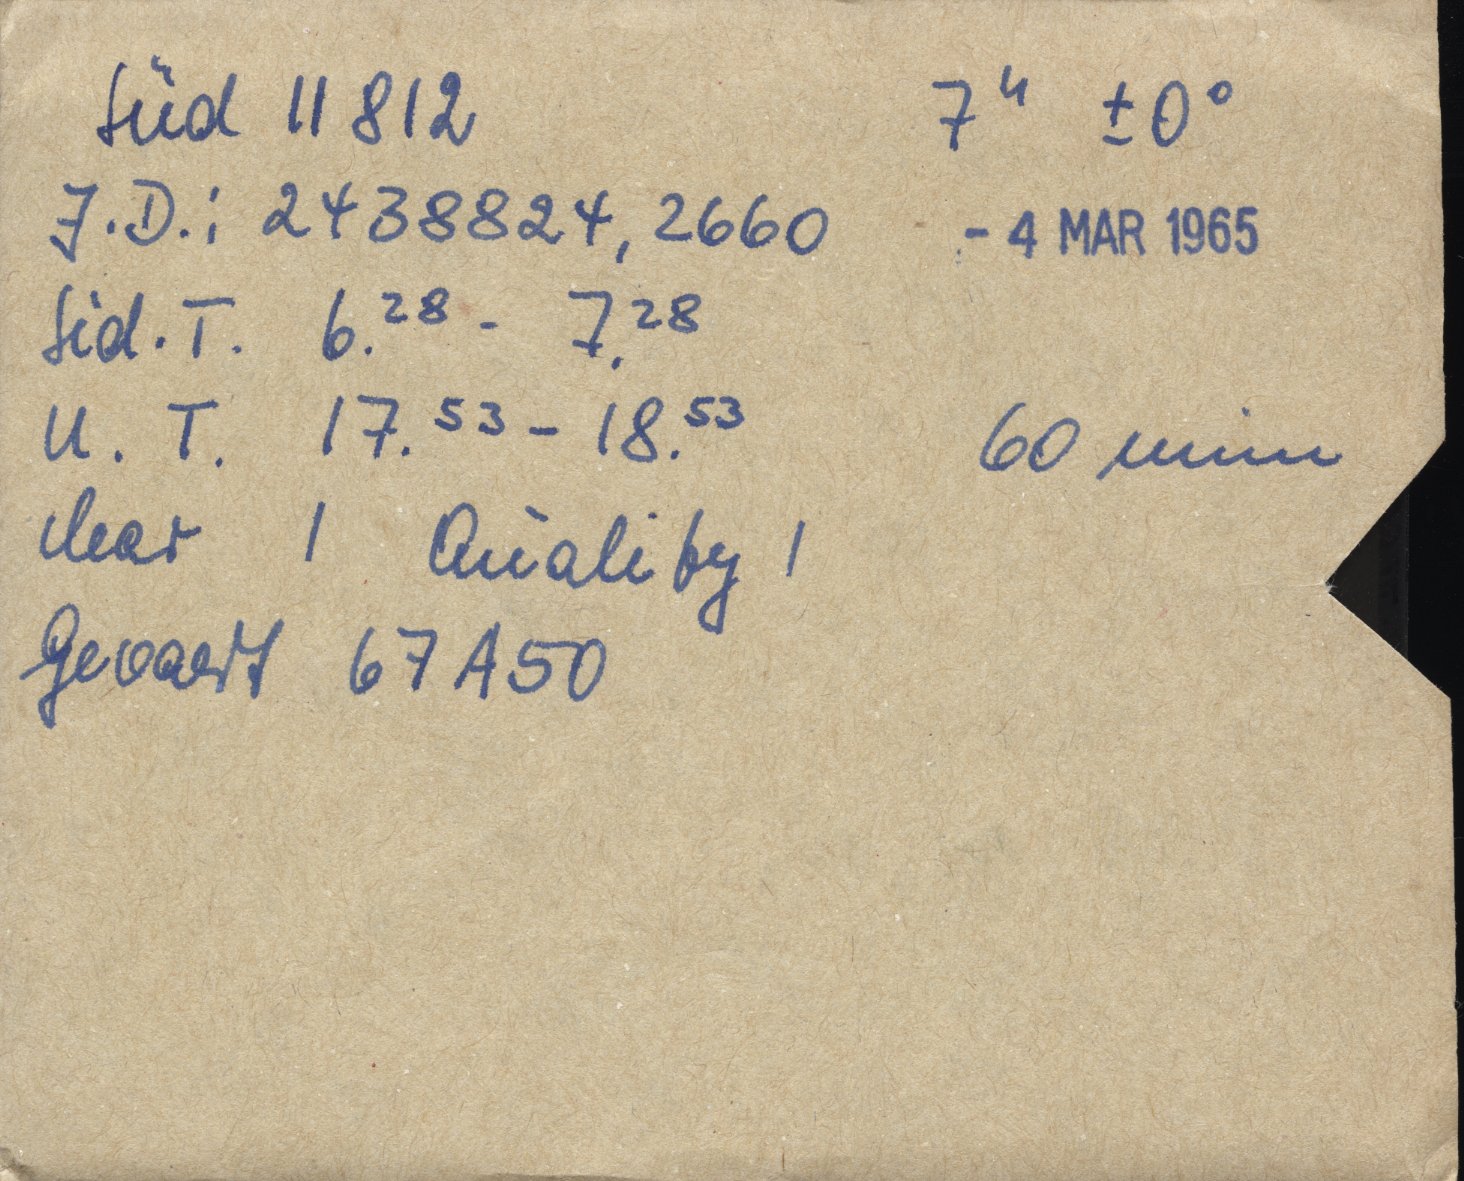 Süd 11812 7ʰ ±0°
J.D.: 2438824,2660 - 4 MAR 1965
Sid. T. 6.²⁸ - 7.²⁸
U. T. 17.⁵³ - 18.⁵³ 60 min
clear 1 Quality 1
Gevaert 67A50